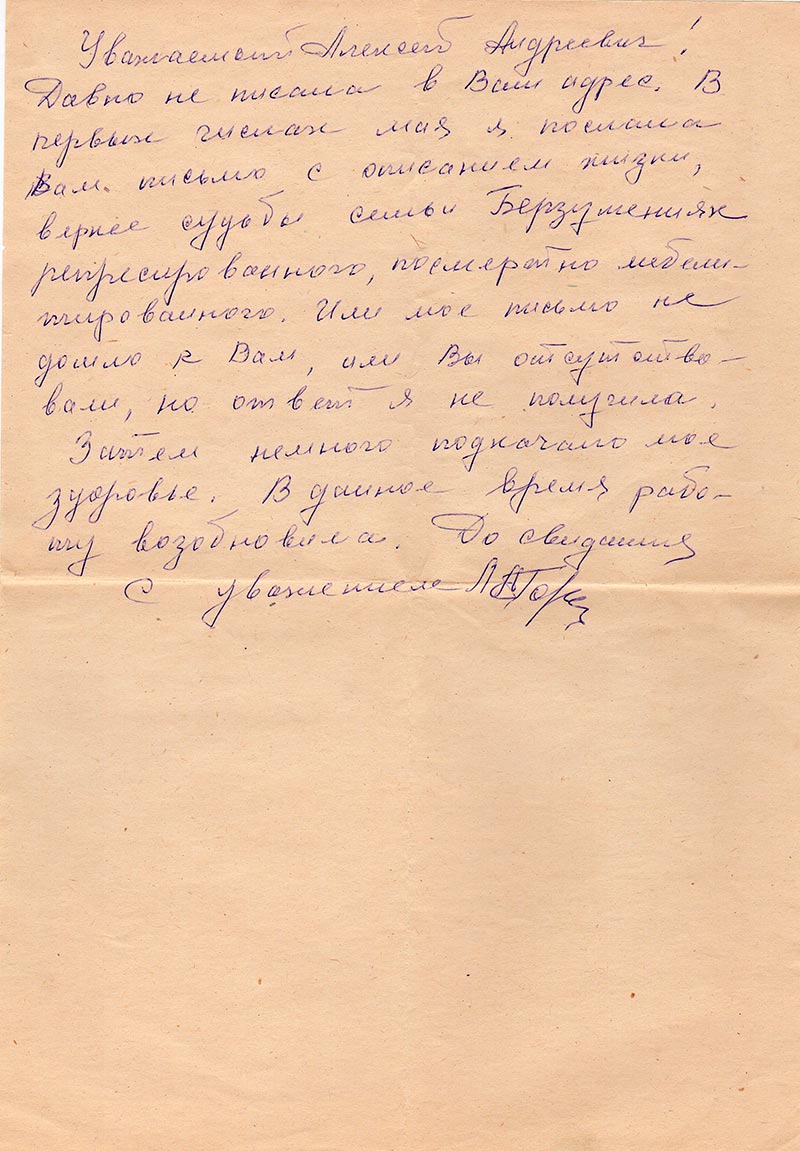 Уважаемый Алексей Андреевич!
Давно не писала в Ваш адрес. В
первых числах мая я послала
Вам письмо с описанием жизни,
вернее судьбы семьи Берзуменияк
репресированного, посмертно
Или мое письмо не
дошло к Вам, или Вы отсутство-
вали, но ответ я не получила.
Затем немного подкачало мое
здоровье. В данное время рабо-
ту возобновила. До свидания
С уважением